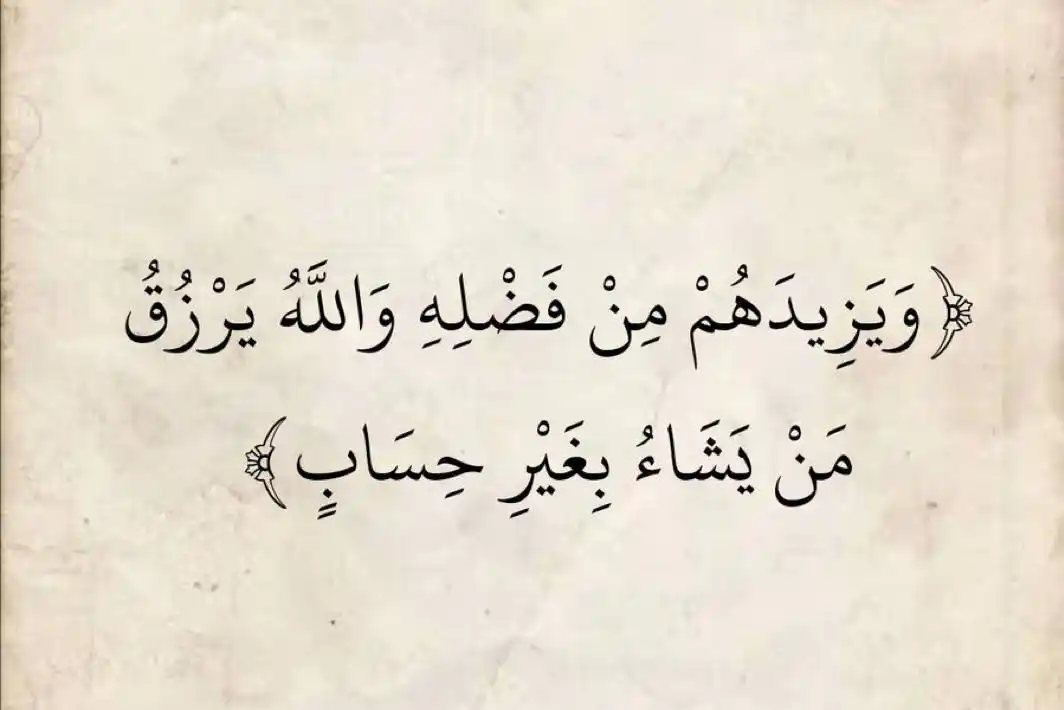 ﴿ وَيَزِيدَهُمْ مِنْ فَضْلِهِ وَاللَّهُ يَرْزُقُ
مَنْ يَشَاءُ بِغَيْرِ حِسَابٍ ﴾